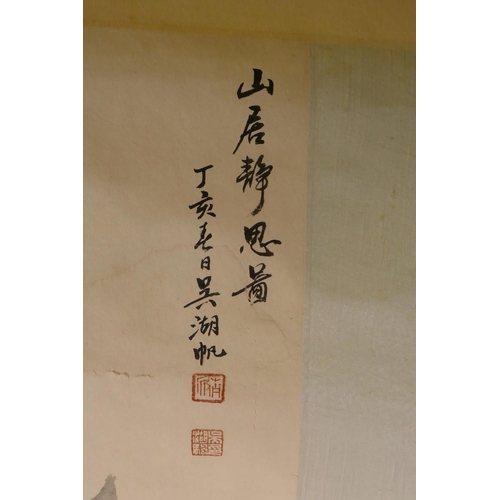 山居静思图
丁亥春日吴湖帆